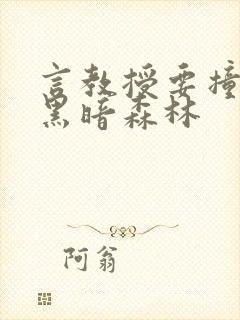 言教授要撞
黑暗森林
阿翁